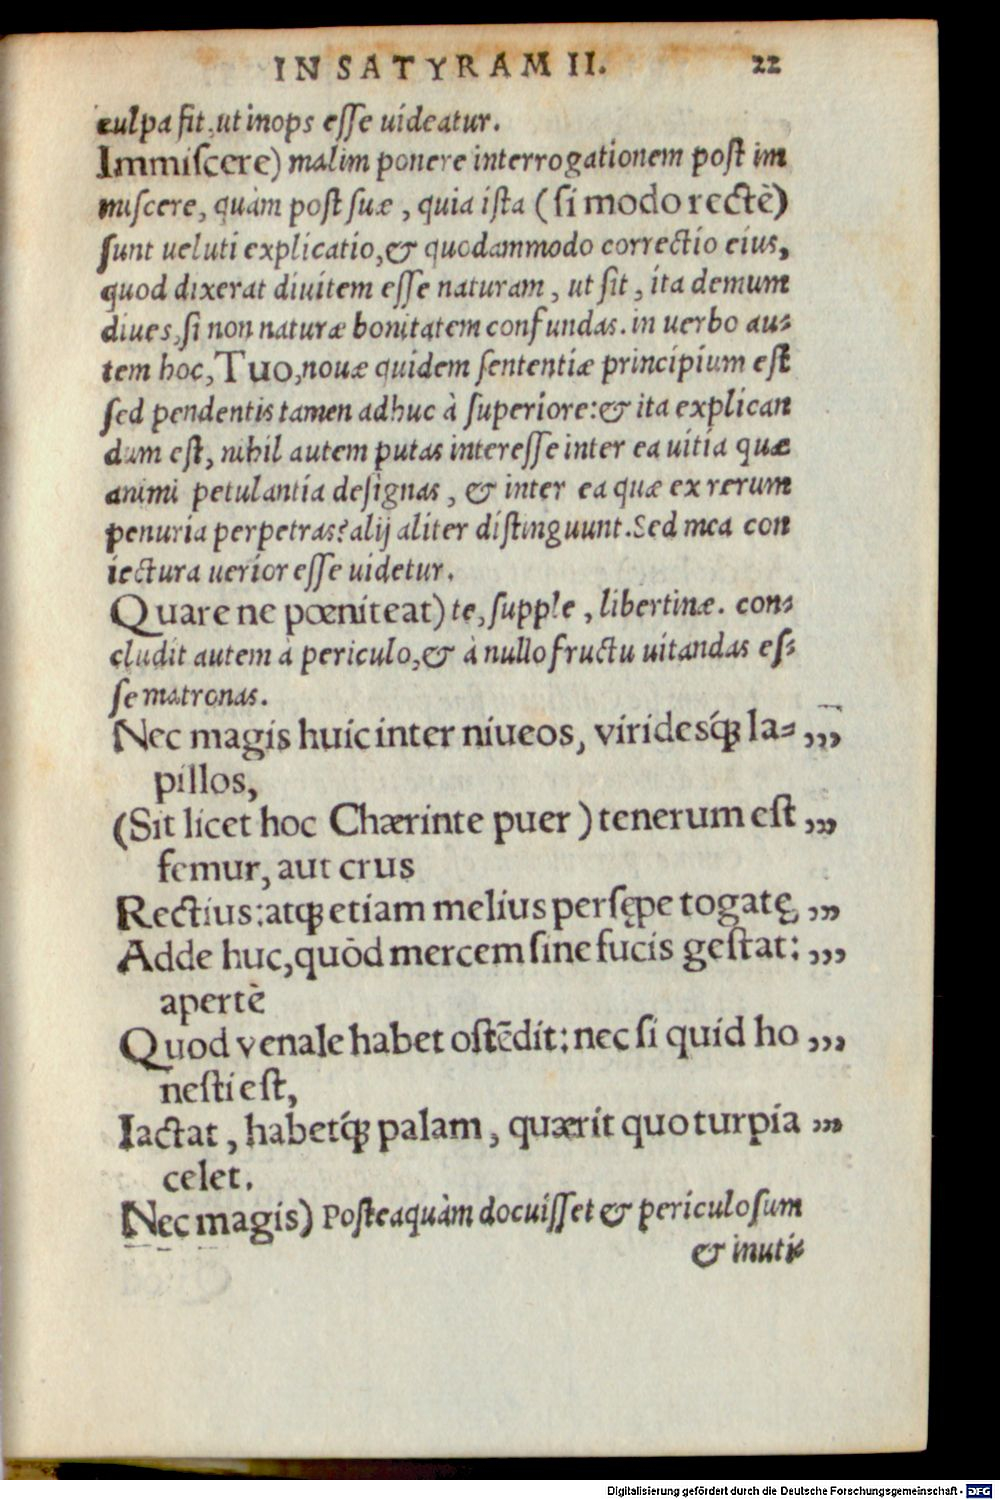 IN SATYRAM II. 22
culpa fit, ut inops eſſe uideatur.
Immiſcere) malim ponere interrogationem poſt im
miſcere, quàm poſt ſuæ, quia iſta (ſi modo rectè)
ſunt ueluti explicatio, & quodammodo correctio eius,
quod dixerat diuitem eſſe naturam, ut ſit, ita demum
diues, ſi non naturæ bonitatem confundas. in uerbo au⸗
tem hoc, Tuo, nouæ quidem ſententiæ principium eſt
ſed pendentis tamen adhuc à ſuperiore: & ita explican
dum eſt, nihil autem putas intereſſe inter ea uitia quæ
animi petulantia deſignas, & inter ea quæ ex rerum
penuria perpetras? alij aliter diſtinguunt. Sed mea con
iectura uerior eſſe uidetur.
Quare ne pœniteat) te, ſupple, libertinæ. con⸗
cludit autem à periculo, & à nullo fructu uitandas eſ⸗
ſe matronas.
Nec magis huic inter niueos, viridesq́ꝫ la⸗ ,,,
pillos,
(Sit licet hoc Chærinte puer) tenerum eſt ,,,
femur, aut crus
Rectius: atqꝫ etiam melius perſępe togatę, ,,,
Adde huc, quòd mercem ſine fucis geſtat: ,,,
apertè
Quod venale habet oſtēdit: nec ſi quid ho ,,,
neſti eſt,
Iactat, habetq́ꝫ palam, quærit quo turpia ,,,
celet.
Nec magis) Poſteaquàm docuiſſet & periculoſum
& inuti⸗
Digitalisierung gefördert durch die Deutsche Forschungsgemeinschaft - DFG